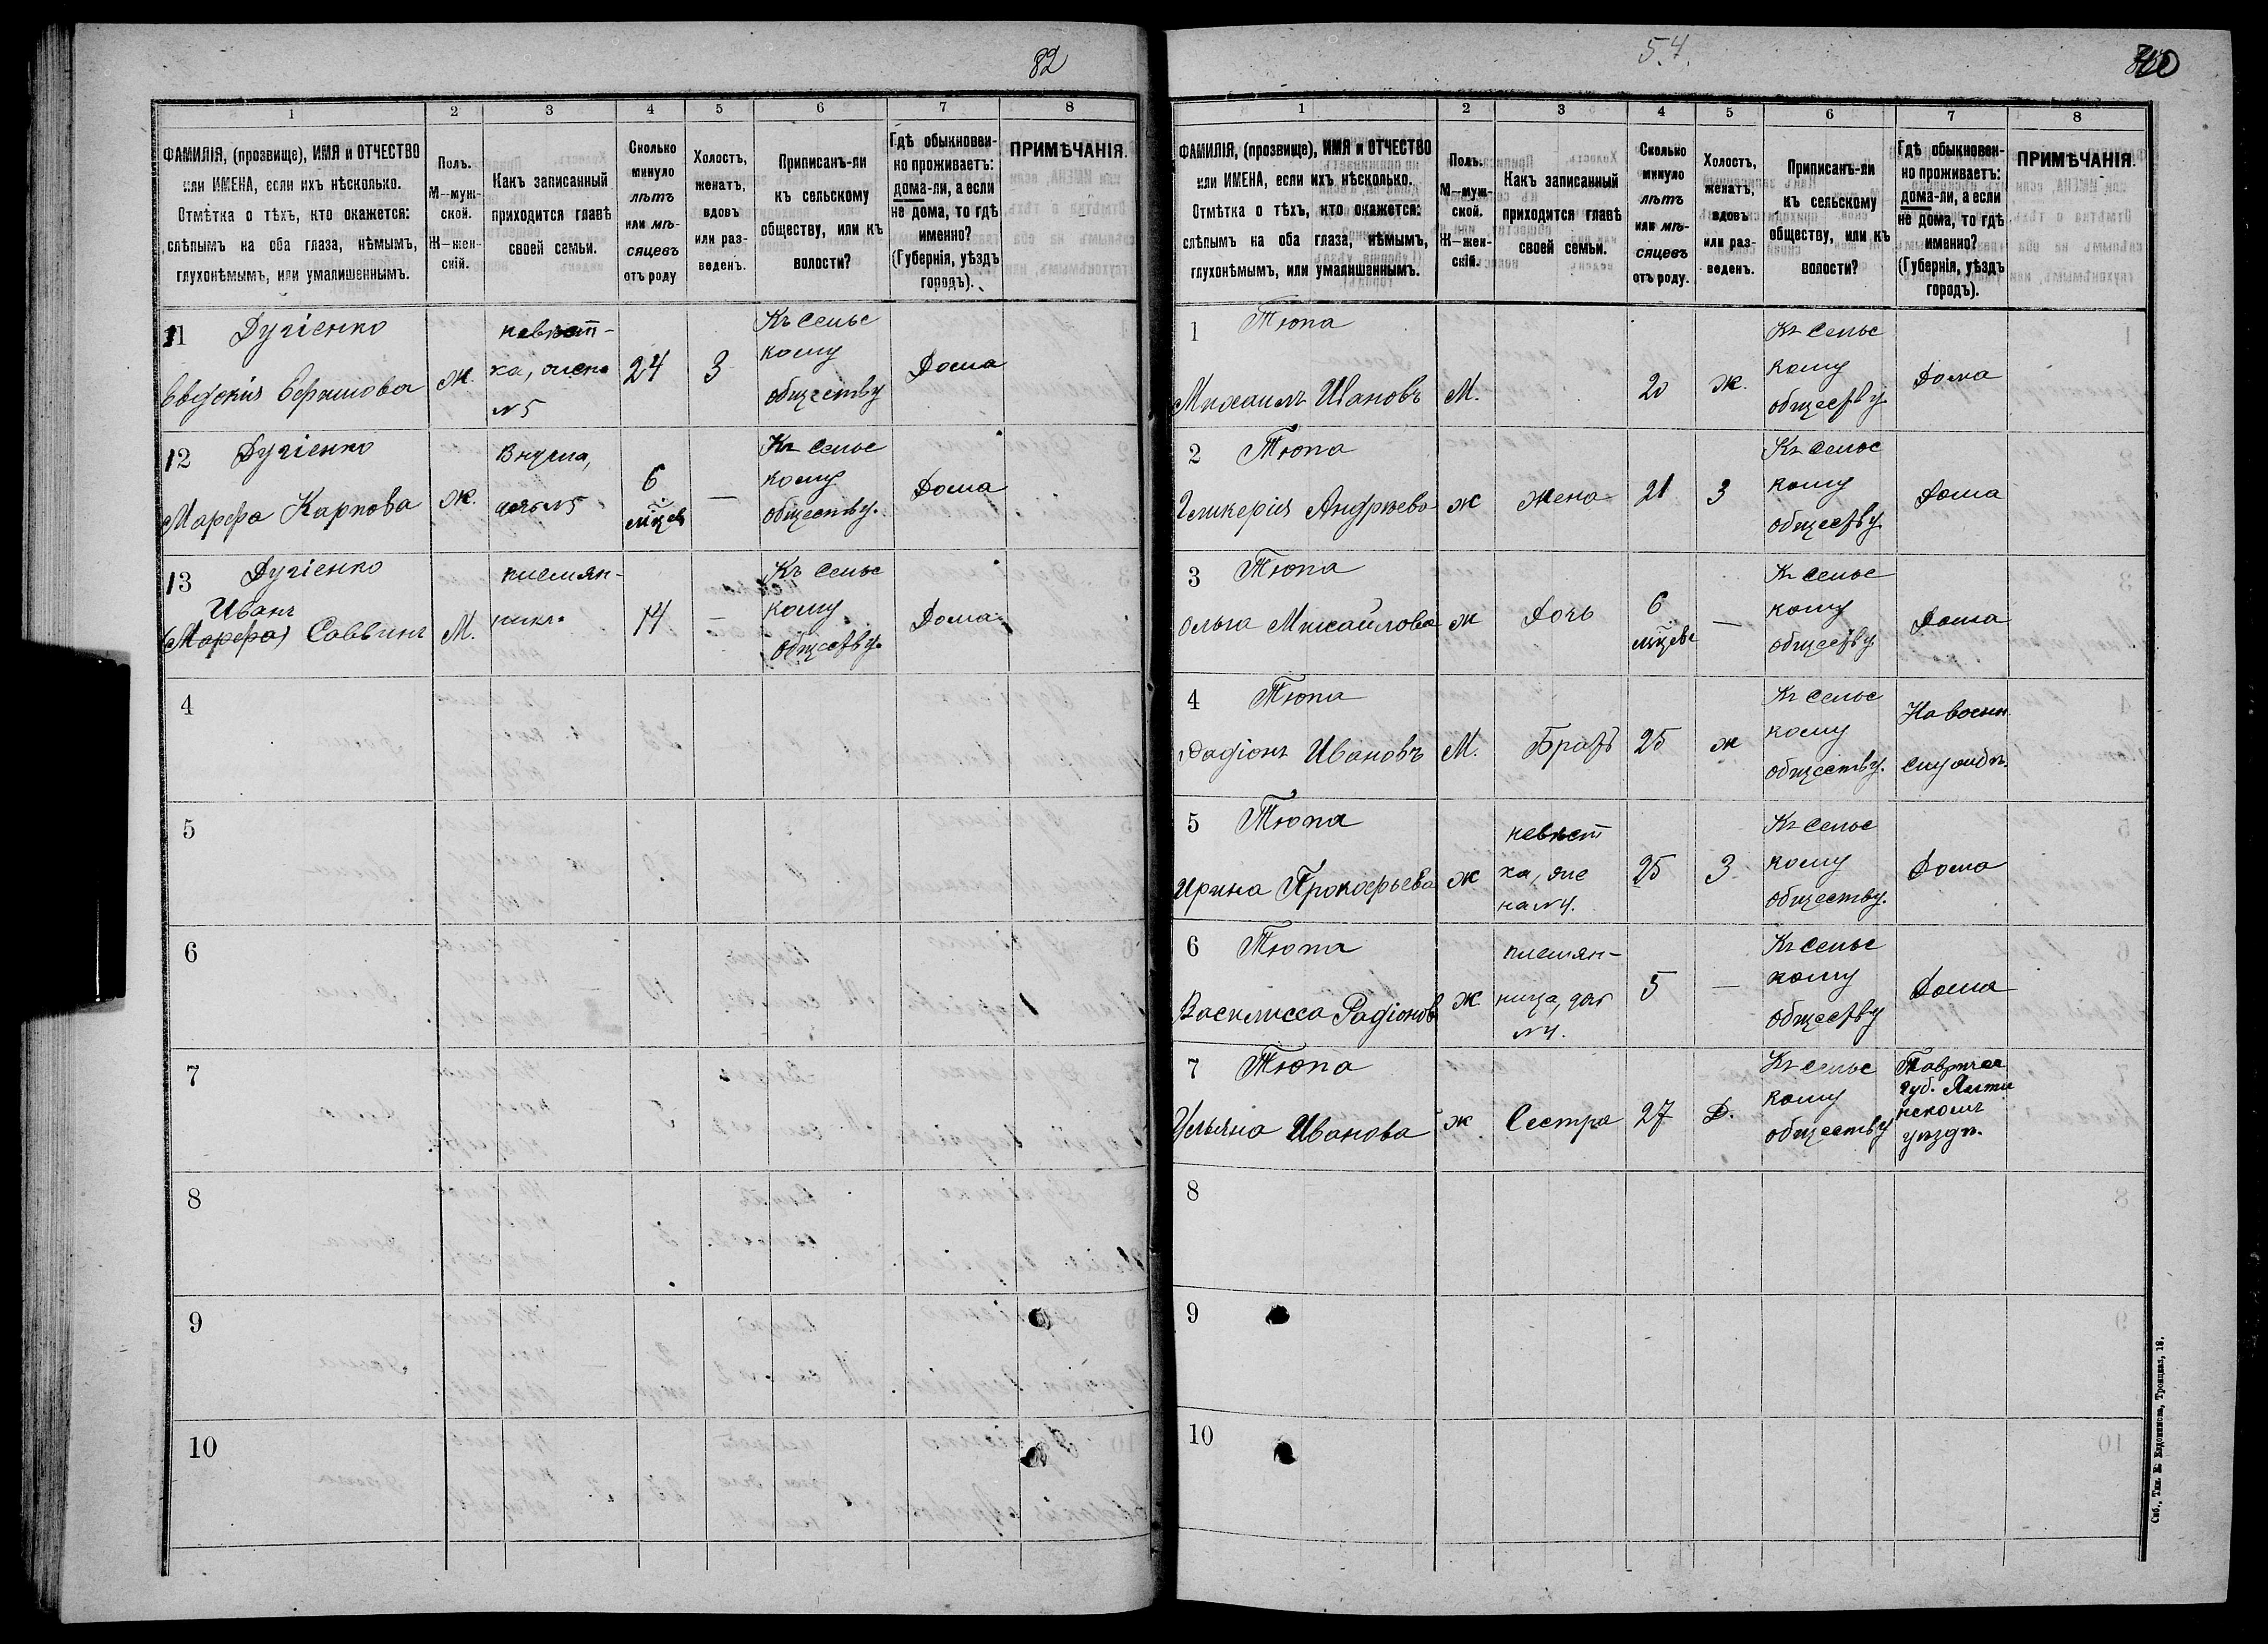 82
1 2 3 4 5 6 7 8
ФАМИЛІЯ, (прозвище), ИМЯ и ОТЧЕСТВО
или ИМЕНА, если ихъ нѣсколько.
Отмѣтка о тѣхъ, кто окажется:
слѣпымъ на оба глаза, нѣмымъ,
глухонѣмымъ, или умалишеннымъ.
Полъ.
М—муж-
ской.
Ж—жен-
скій.
Какъ записанный
приходится главѣ
своей семьи.
Сколько
минуло
лѣтъ
или мѣ-
сяцевъ
отъ роду
Холостъ,
женатъ,
вдовъ
или раз-
веденъ.
Приписанъ-ли
къ сельскому
обществу, или къ
волости?
Гдѣ обыкновен-
но проживаетъ:
дома-ли, а если
не дома, то гдѣ
именно?
(Губернія, уѣздъ
городъ).
ПРИМѢЧАНІЯ.
11 Дугіенко
Евдокія Ефимова
ж.
невѣст-
ка, жена
№5
24
З
Къ сельс
кому
обществу
Дома
12 Дугіенко
Марфа Карпова
ж.
Внучка,
дочь №5
6
мѣцев
—
Къ сельс
кому
обществу.
Дома
13 Дугіенко
Иванъ
(Марфа) Саввинъ
М.
племян-
никъ
14
—
Къ сельс
кому
обществу.
Дома
4
5
6
7
8
9
10
5.4.
1 2 3 4 5 6 7 8
ФАМИЛІЯ, (прозвище), ИМЯ и ОТЧЕСТВО
или ИМЕНА, если ихъ нѣсколько.
Отмѣтка о тѣхъ, кто окажется:
слѣпымъ на оба глаза, нѣмымъ,
глухонѣмымъ, или умалишеннымъ.
Полъ.
М—муж-
ской.
Ж—жен-
скій.
Какъ записанный
приходится главѣ
своей семьи.
Сколько
минуло
лѣтъ
или мѣ-
сяцевъ
отъ роду.
Холостъ,
женатъ,
вдовъ
или раз-
веденъ.
Приписанъ-ли
къ сельскому
обществу, или къ
волости?
Гдѣ обыкновен-
но проживаетъ:
дома-ли, а если
не дома, то гдѣ
именно?
(Губернія, уѣздъ
городъ).
ПРИМѢЧАНІЯ.
1 Тюпа
Михаилъ Ивановъ
М.
20
ж.
Къ сельс
кому
обществу
Дома
2 Тюпа
Гликерія Андрѣева
ж
жена
21
З
Къ сельс
кому
обществу
Дома
3 Тюпа
Ольга Михайлова
ж
Дочь
6
мѣцевъ
—
Къ сельс
кому
обществу
Дома
4 Тюпа
Радіонъ Ивановъ
М.
Братъ
25
ж
Къ сельс
кому
обществу.
На воен.
службѣ.
5 Тюпа
Ирина Прокофьева
ж
невѣст
ка, же
на №4.
25
З
Къ сельс
кому
обществу.
Дома
6 Тюпа
Василисса Радіонов
ж
племян-
ница, доч
№4.
5
—
Къ сельс
кому
обществу
Дома
7 Тюпа
Ульяна Иванова
ж
Сестра
27
Д.
Къ сельс
кому
обществу
Тавричес
губ. Ялти
нскомъ
уѣздѣ.
8
9
10
Спб., Тип. Е. Евдокимова, Троицкая, 18.